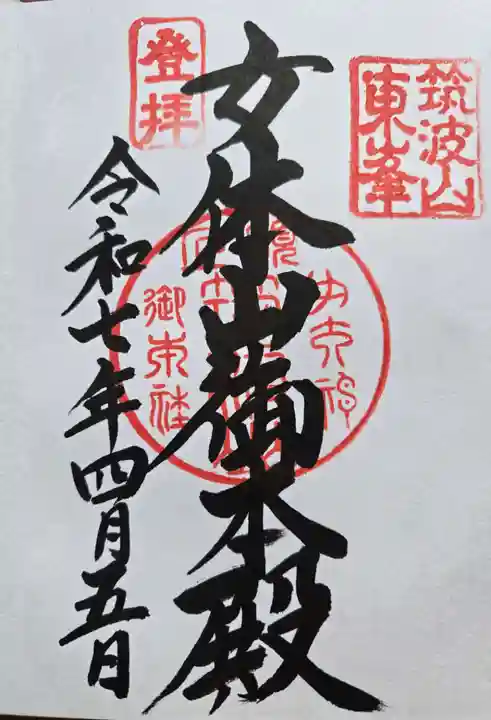 筑波山
東峯
女体山御本殿
登拝
令和七年四月五日
御本社